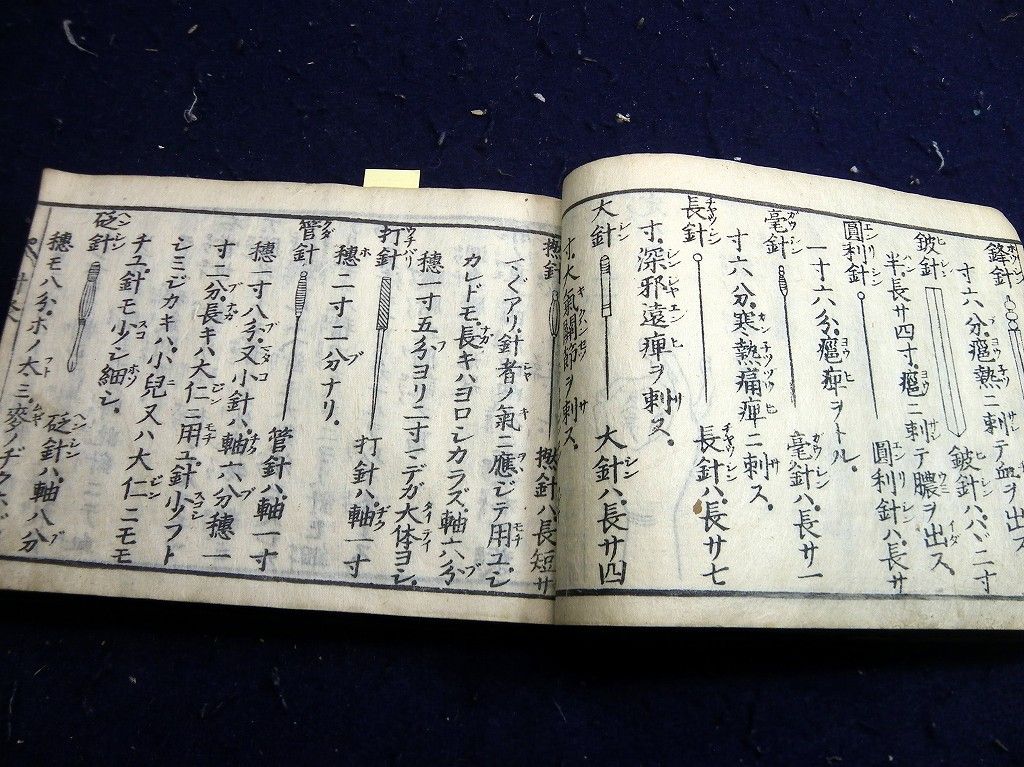 鋒針
寸六分.癰熱ニ刺テ血ヲ出ス
鈹針 鈹針ハ.ハバ二寸
半.長サ四寸.癰ニ刺テ膿ヲ出ス.
圓利針 圓利針ハ.長サ
一寸六分.癰痺ヲトル.
毫針 毫針ハ.長サ一
寸六分.寒熱痛痺ニ刺ス.
長針 長針ハ.長サ七
寸.深邪遠痺ヲ刺ス.
大針 大針ハ.長サ四
寸.大氣關節ヲ刺ス.
撚針 撚針ハ.長短サ
アリ.針者ノ氣ニ應ジテ用ユ.シ
カレドモ.長キハヨロシカラズ.軸六分
穗一寸五分ヨリ二寸マデガ大体ヨシ.
打針 打針ハ.軸一寸
穗二寸二分ナリ.
管針 管針ハ.軸一寸
穗一寸八分.又小針ハ.軸六分穗一
寸二分.長キハ大仁ニ用ユ.針少フト
シミジカキハ.小兒又ハ大仁ニモモ
チユ.針モ少シ細シ.
砭針 砭針ハ.軸八分
穗モ八分.ホノ太三.麥ノ